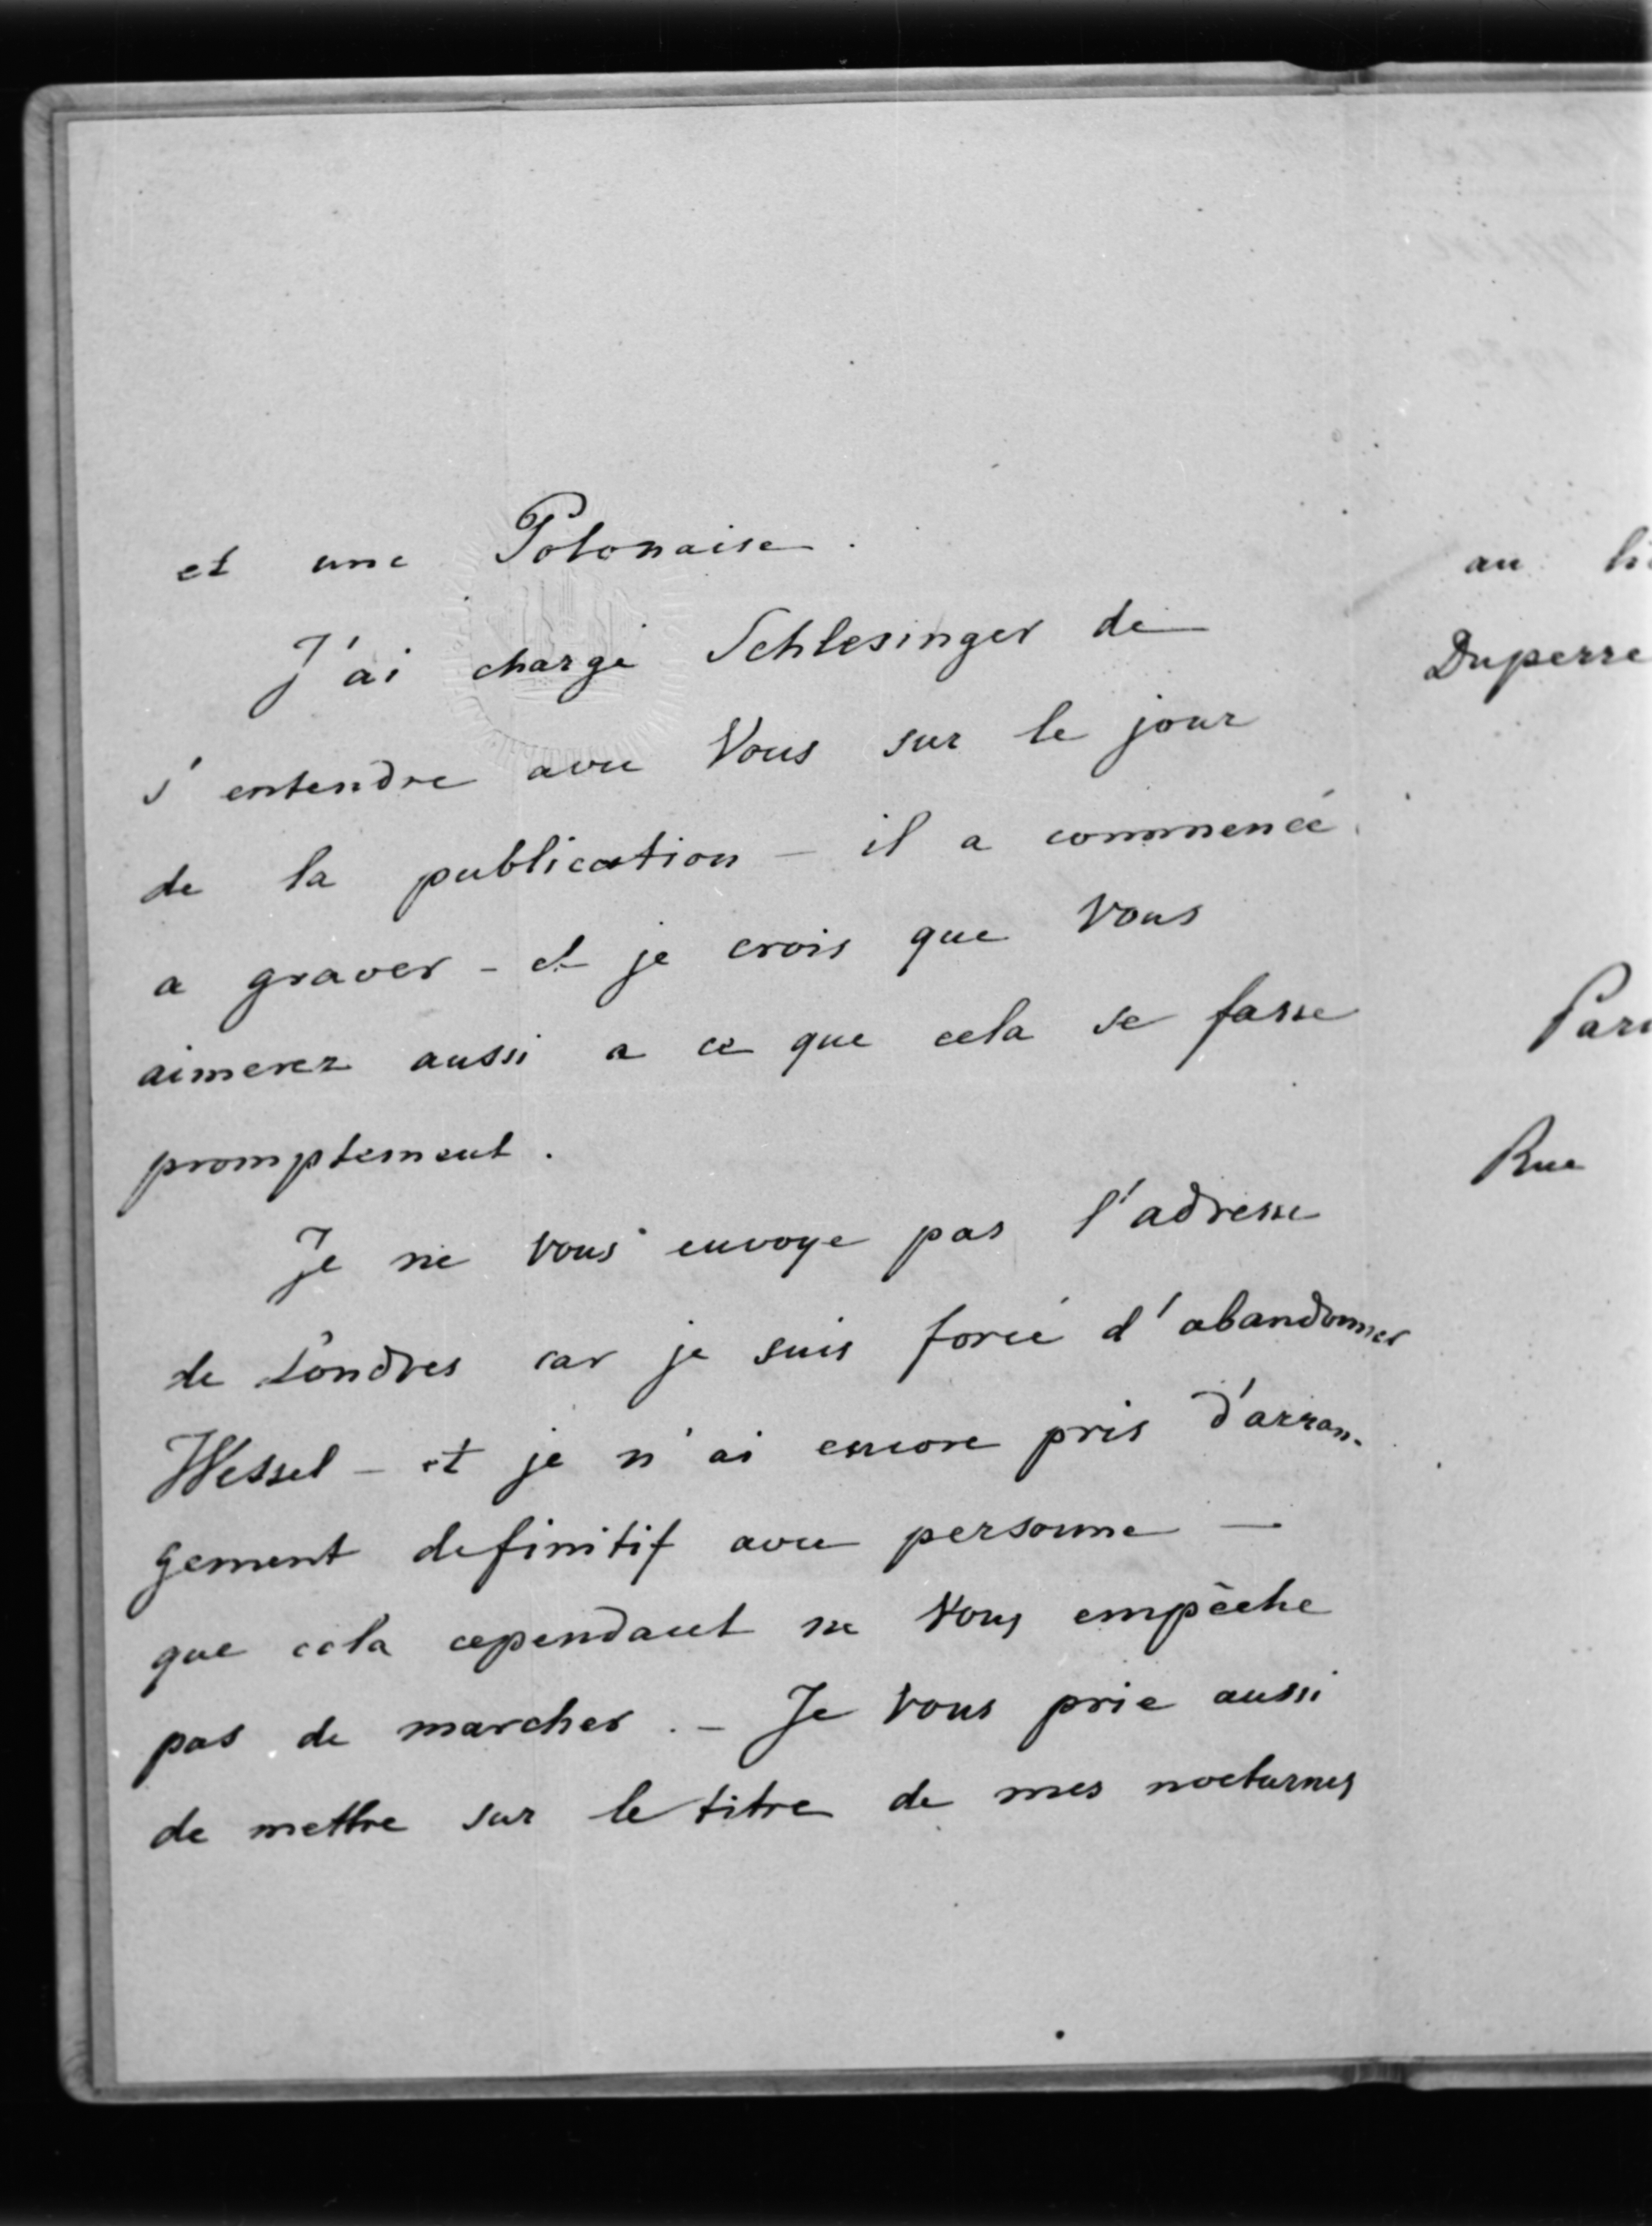 et une Polonaise.
J'ai chargé Schlesinger de
s'entendre avec Vous sur le jour
de la publication - il a commencé
a graver - et je crois que Vous
aimerez aussi a ce que cela se fasse
promptement.
Je ne Vous envoye pas l'adresse
de Londres car je suis forcé d'abandonner
Wessel - et je n'ai encore pris d'arran-
gement definitif avec personne -
que cela cependant ne Vous empèche
pas de marcher. - Je Vous prie aussi
de mettre sur le titre de mes nocturnes
au
Duperre
Rue